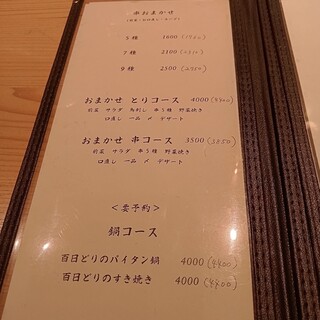 串おまかせ
5種 1600
7種 2100
9種 2500
おまかせ とりコース 4000(4400)
前菜 サラダ 鳥刺し 串5種 野菜焼き
口直し 一品 〆 デザート
おまかせ 串コース 3500(3850)
前菜 サラダ 串5種 野菜焼き
口直し 一品 〆 デザート
<要予約>
鍋コース
百日どりのパイタン鍋 4000(4400)
百日どりのすき焼き 4000(4400)